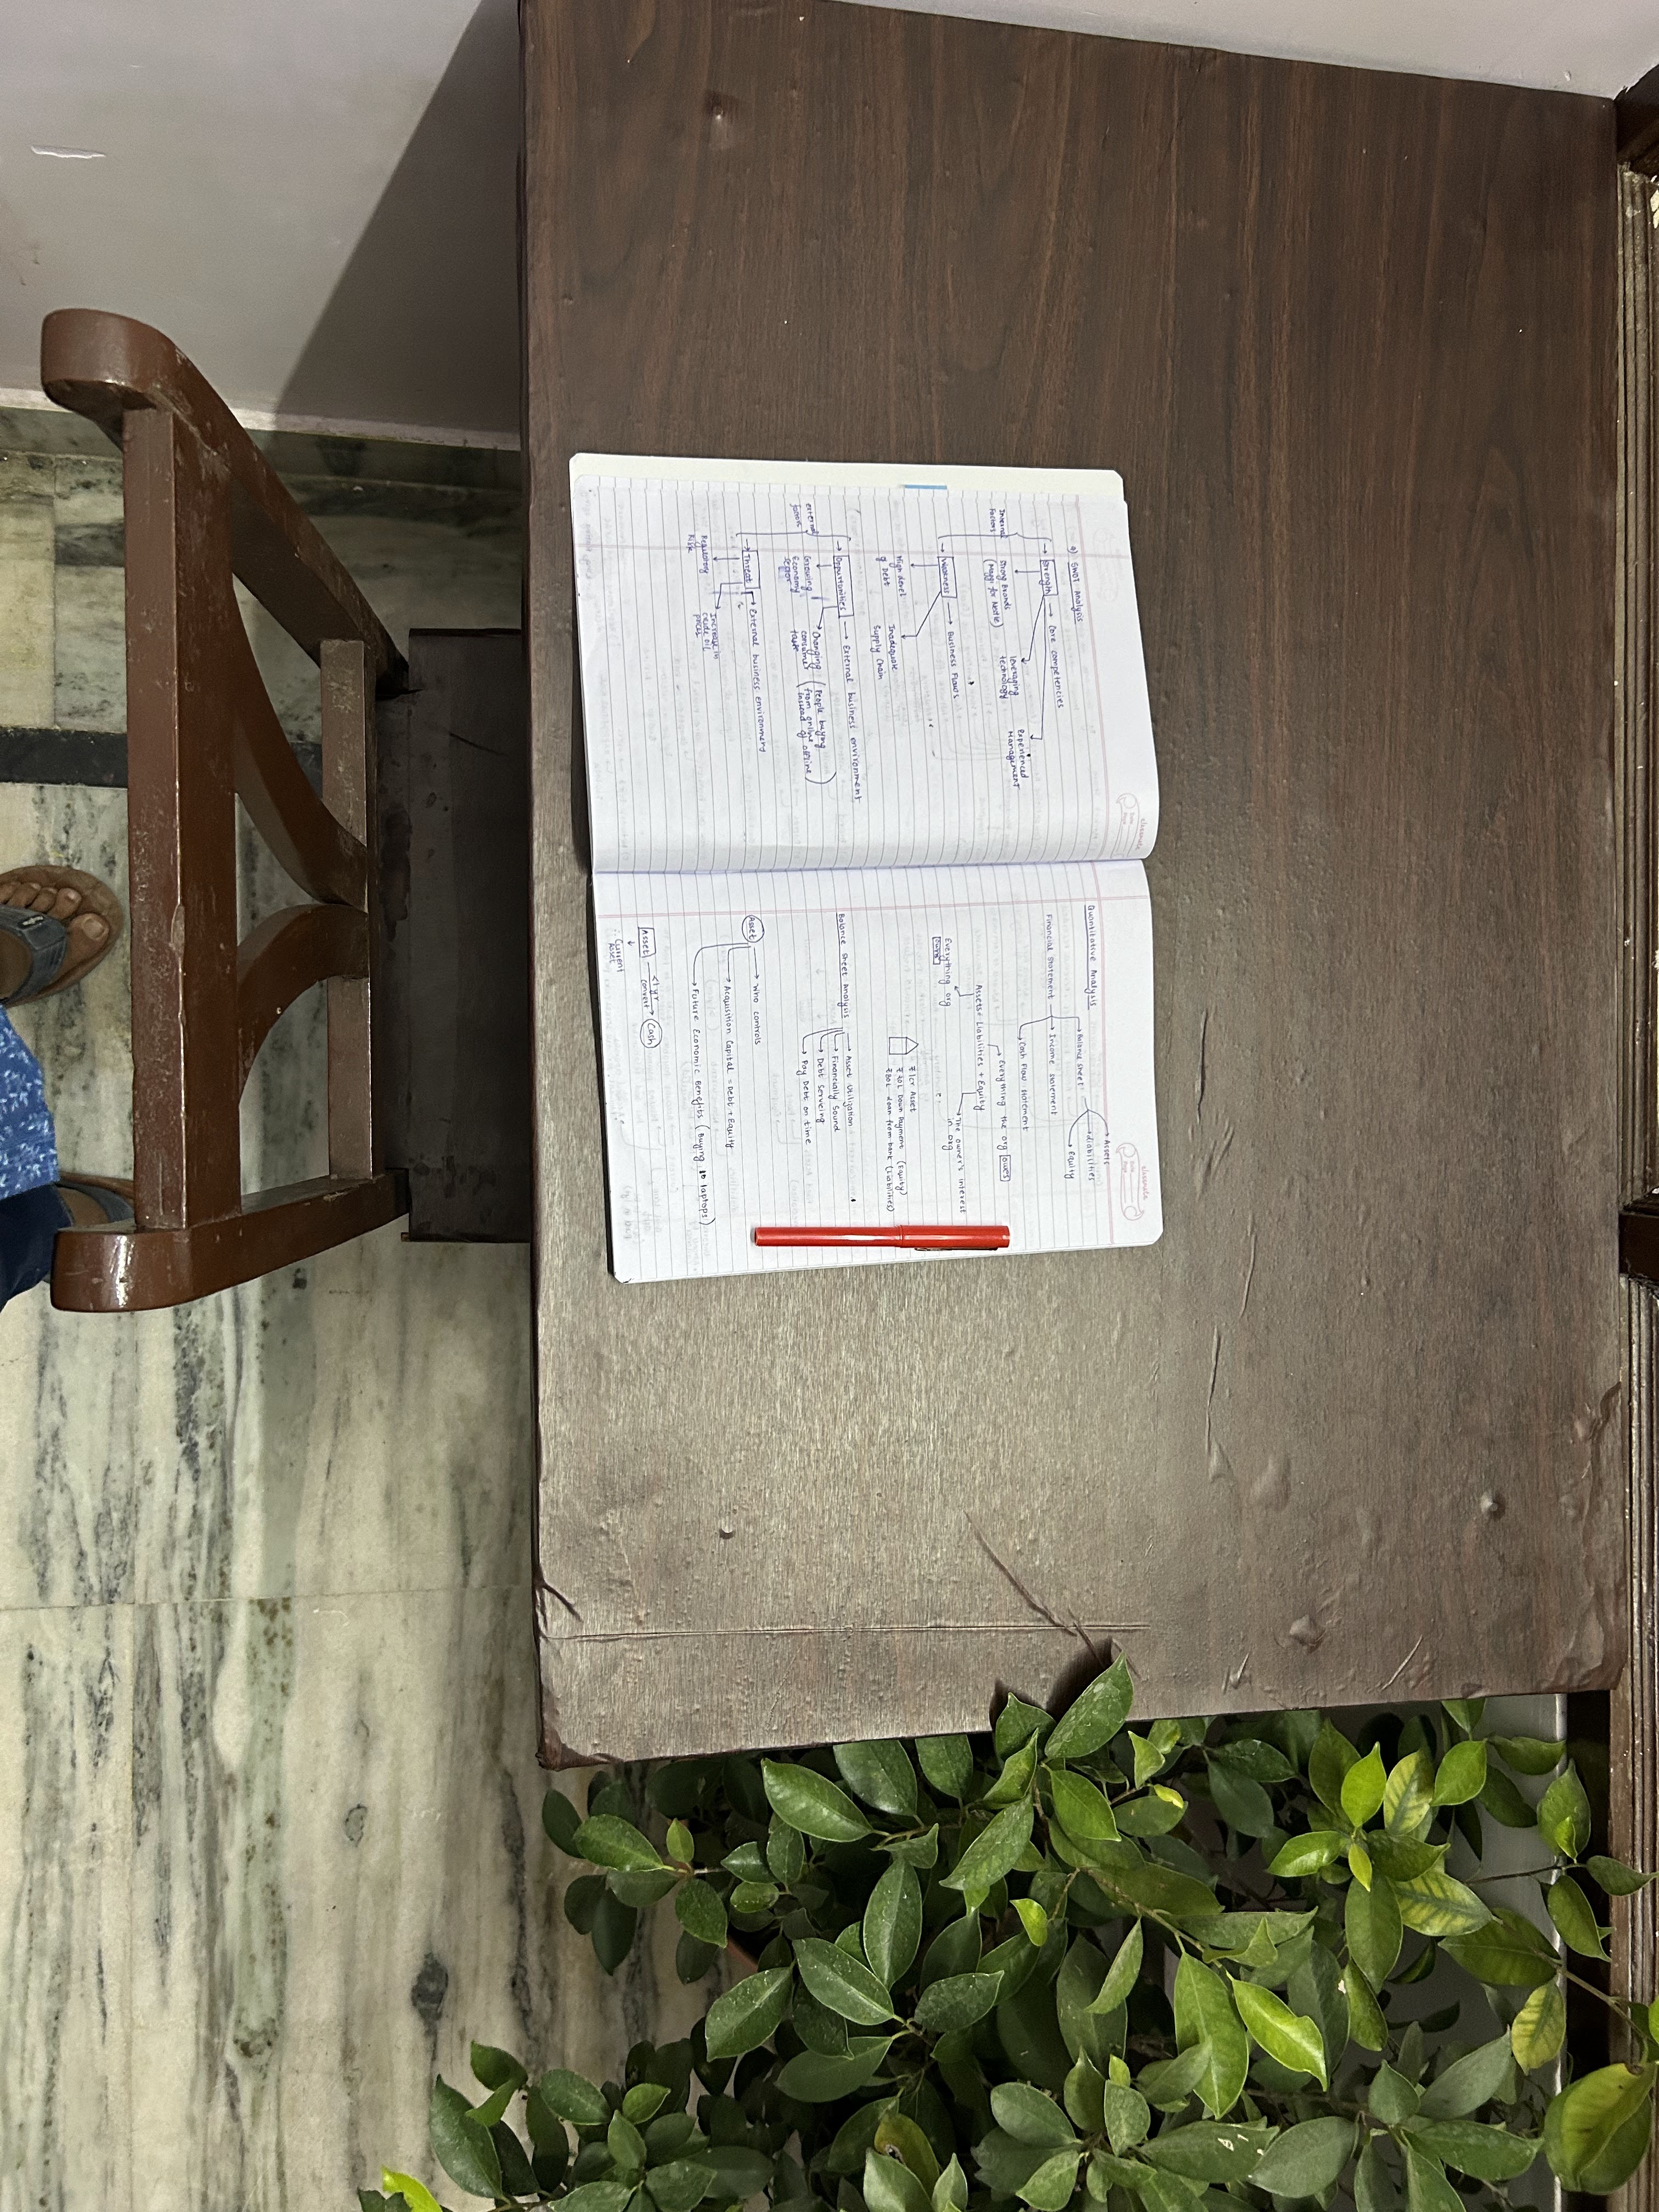 a) SWOT Analysis
Internal Factors
Strength → Core competencies
Strong Brands
(Maggi for Nestle)
leveraging
technology
Experienced
Management
Weakness → Business Flaws
High level
of Debt
Inadequate
Supply Chain
external
Opportunities → External business environment
Growing
Economy
Changing
consumer
taste
(People buying
from online
instead of offline)
Threat → External business environment
Regulatory
Risk
Increase in
crude oil
prices
classmate
Date
Page
Quantitative Analysis
Financial Statement → Balance sheet
Assets
Liabilities
Equity
→ Income statement
→ Cash Flow statement
Assets = Liabilities + Equity
Everything org
owns
Everything the org owes
The owner's interest
in org
₹1cr Asset
₹20L Down Payment (Equity)
₹80L loan from bank (Liabilities)
Balance Sheet Analysis → Asset Utilization
→ Financially Sound
→ Debt Serveing
→ Pay Debt on time
Asset → Who controls
→ Acquisition Capital = Debt + Equity
→ Future Economic Benefits (Buying 10 laptops)
Asset <1yr convert → Cash
↓
∴ Current
Asset
classmate
Date
Page